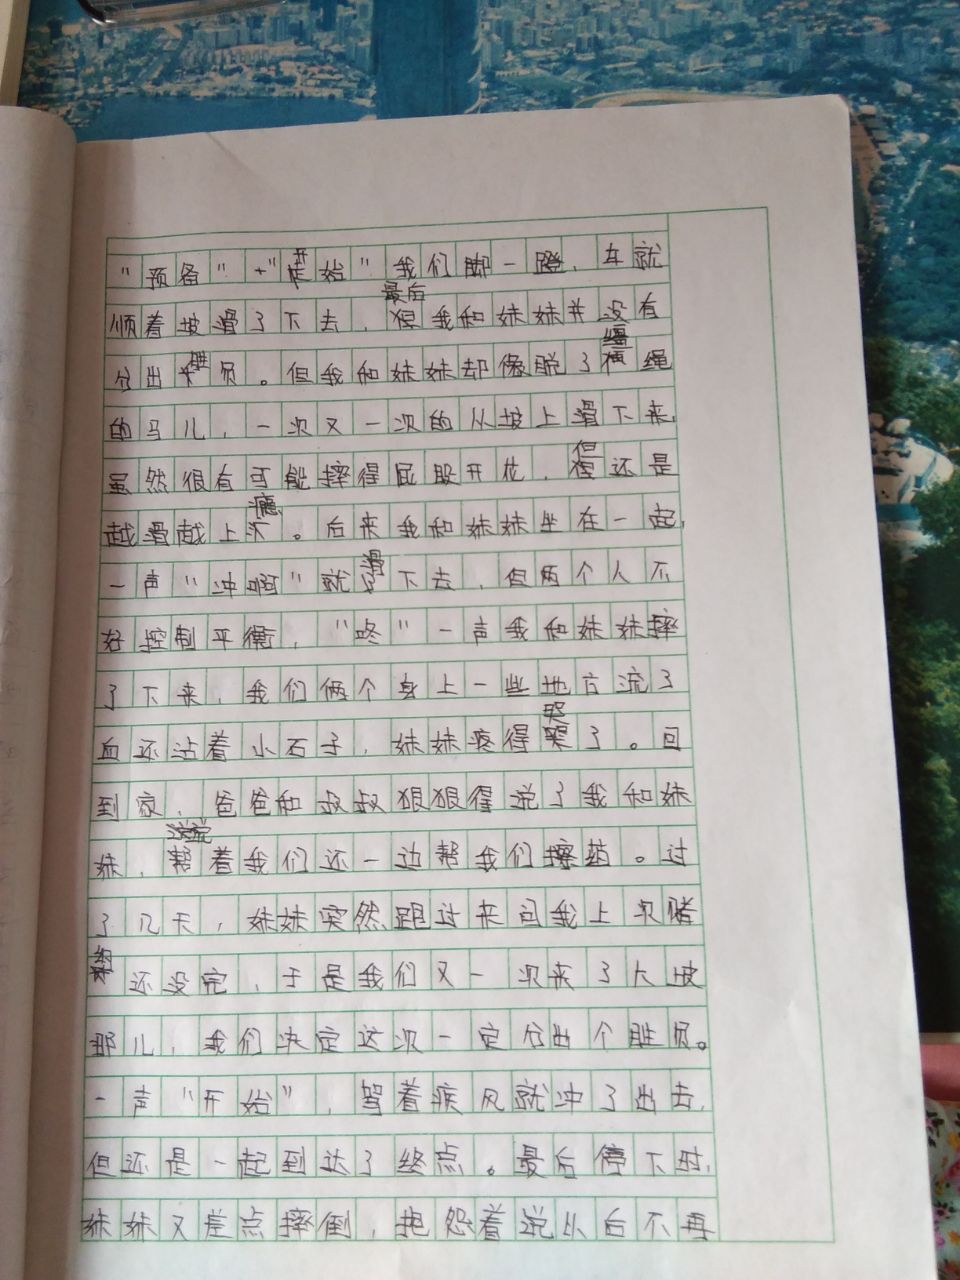 "预备""开始"我们脚一蹬，车就
顺着坡滑了下去，最后我和妹妹并没有
分出胜负。但我和妹妹却像脱了缰绳
的马儿，一次又一次的从坡上滑下来，
虽然很有可能摔得屁股开花，但还是
越滑越上瘾。后来我和妹妹坐在一起，
一声"冲啊"就滑了下去，但两个人不
好控制平衡，"咚"一声我和妹妹摔
了下来，我们俩个身上一些地方流了
血还沾着小石子，妹妹疼得哭了。回
到家，爸爸和叔叔狠狠得说了我和妹
妹，说着我们还一边帮我们擦药。过
了几天，妹妹突然跑过来问我上次赌
约还没完，于是我们又一次来了大坡
那儿，我们决定这次一定分出个胜负。
一声"开始"，驾着疾风就冲了出去，
但还是一起到达了终点。最后停下时，
妹妹又差点摔倒，抱怨着说从后不再